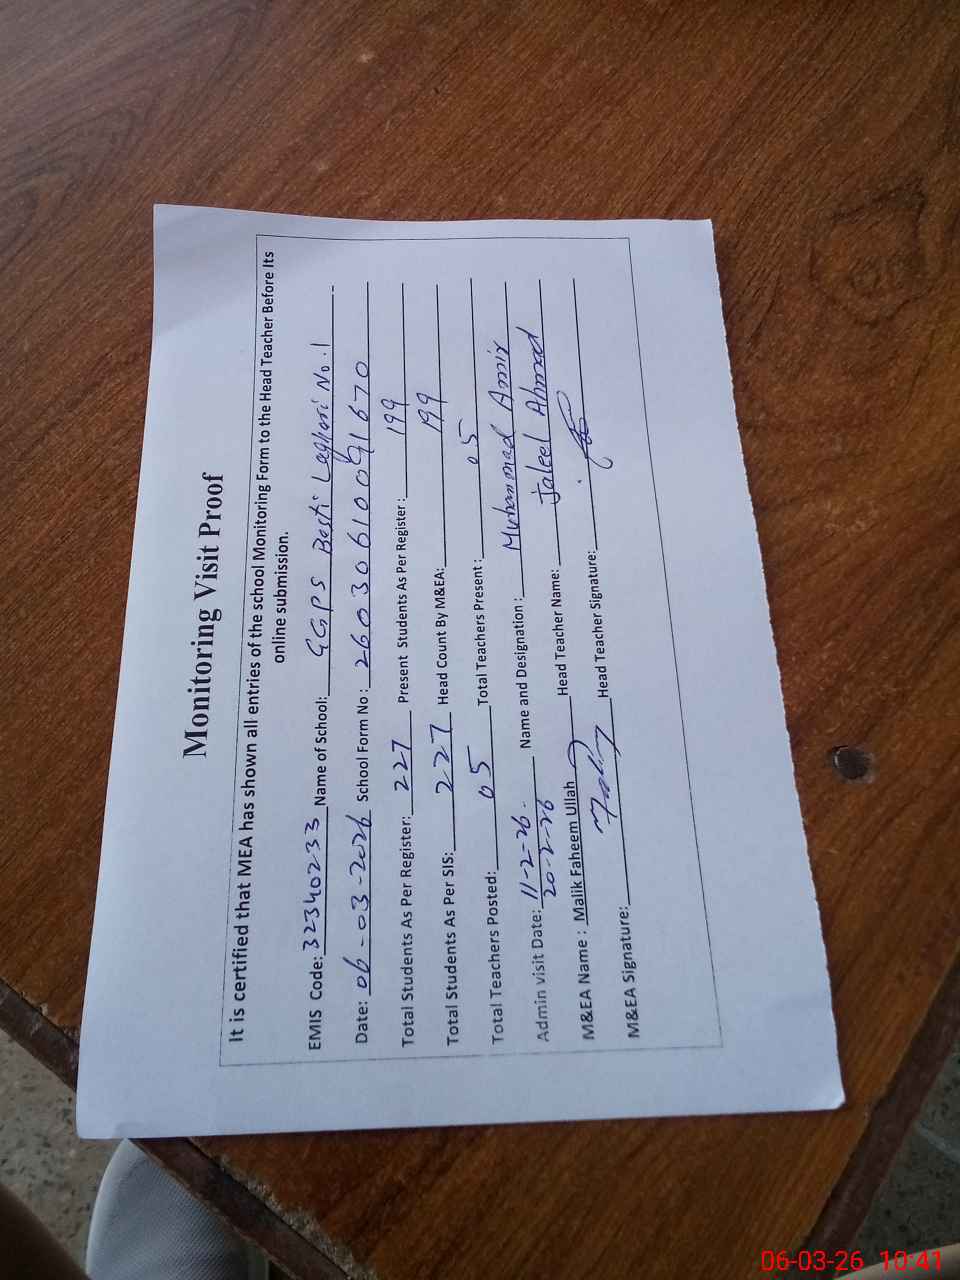 Monitoring Visit Proof
It is certified that MEA has shown all entries of the school Monitoring Form to the Head Teacher Before Its
online submission.
EMIS Code: 32340233 Name of School: GGPS Basti Leghari No.1
Date: 06-03-2026 School Form No: 26030610091670
Total Students As Per Register: 227 Present Students As Per Register: 199
Total Students As Per SIS: 227 Head Count By M&EA: 199
Total Teachers Posted: 05 Total Teachers Present: 05
Admin visit Date: 11-2-26. Name and Designation: Muhammad Amir
20-2-26
M&EA Name: Malik Faheem Ullah Head Teacher Name: Jaleel Ahmad
M&EA Signature: Head Teacher Signature:
06-03-26 10:41